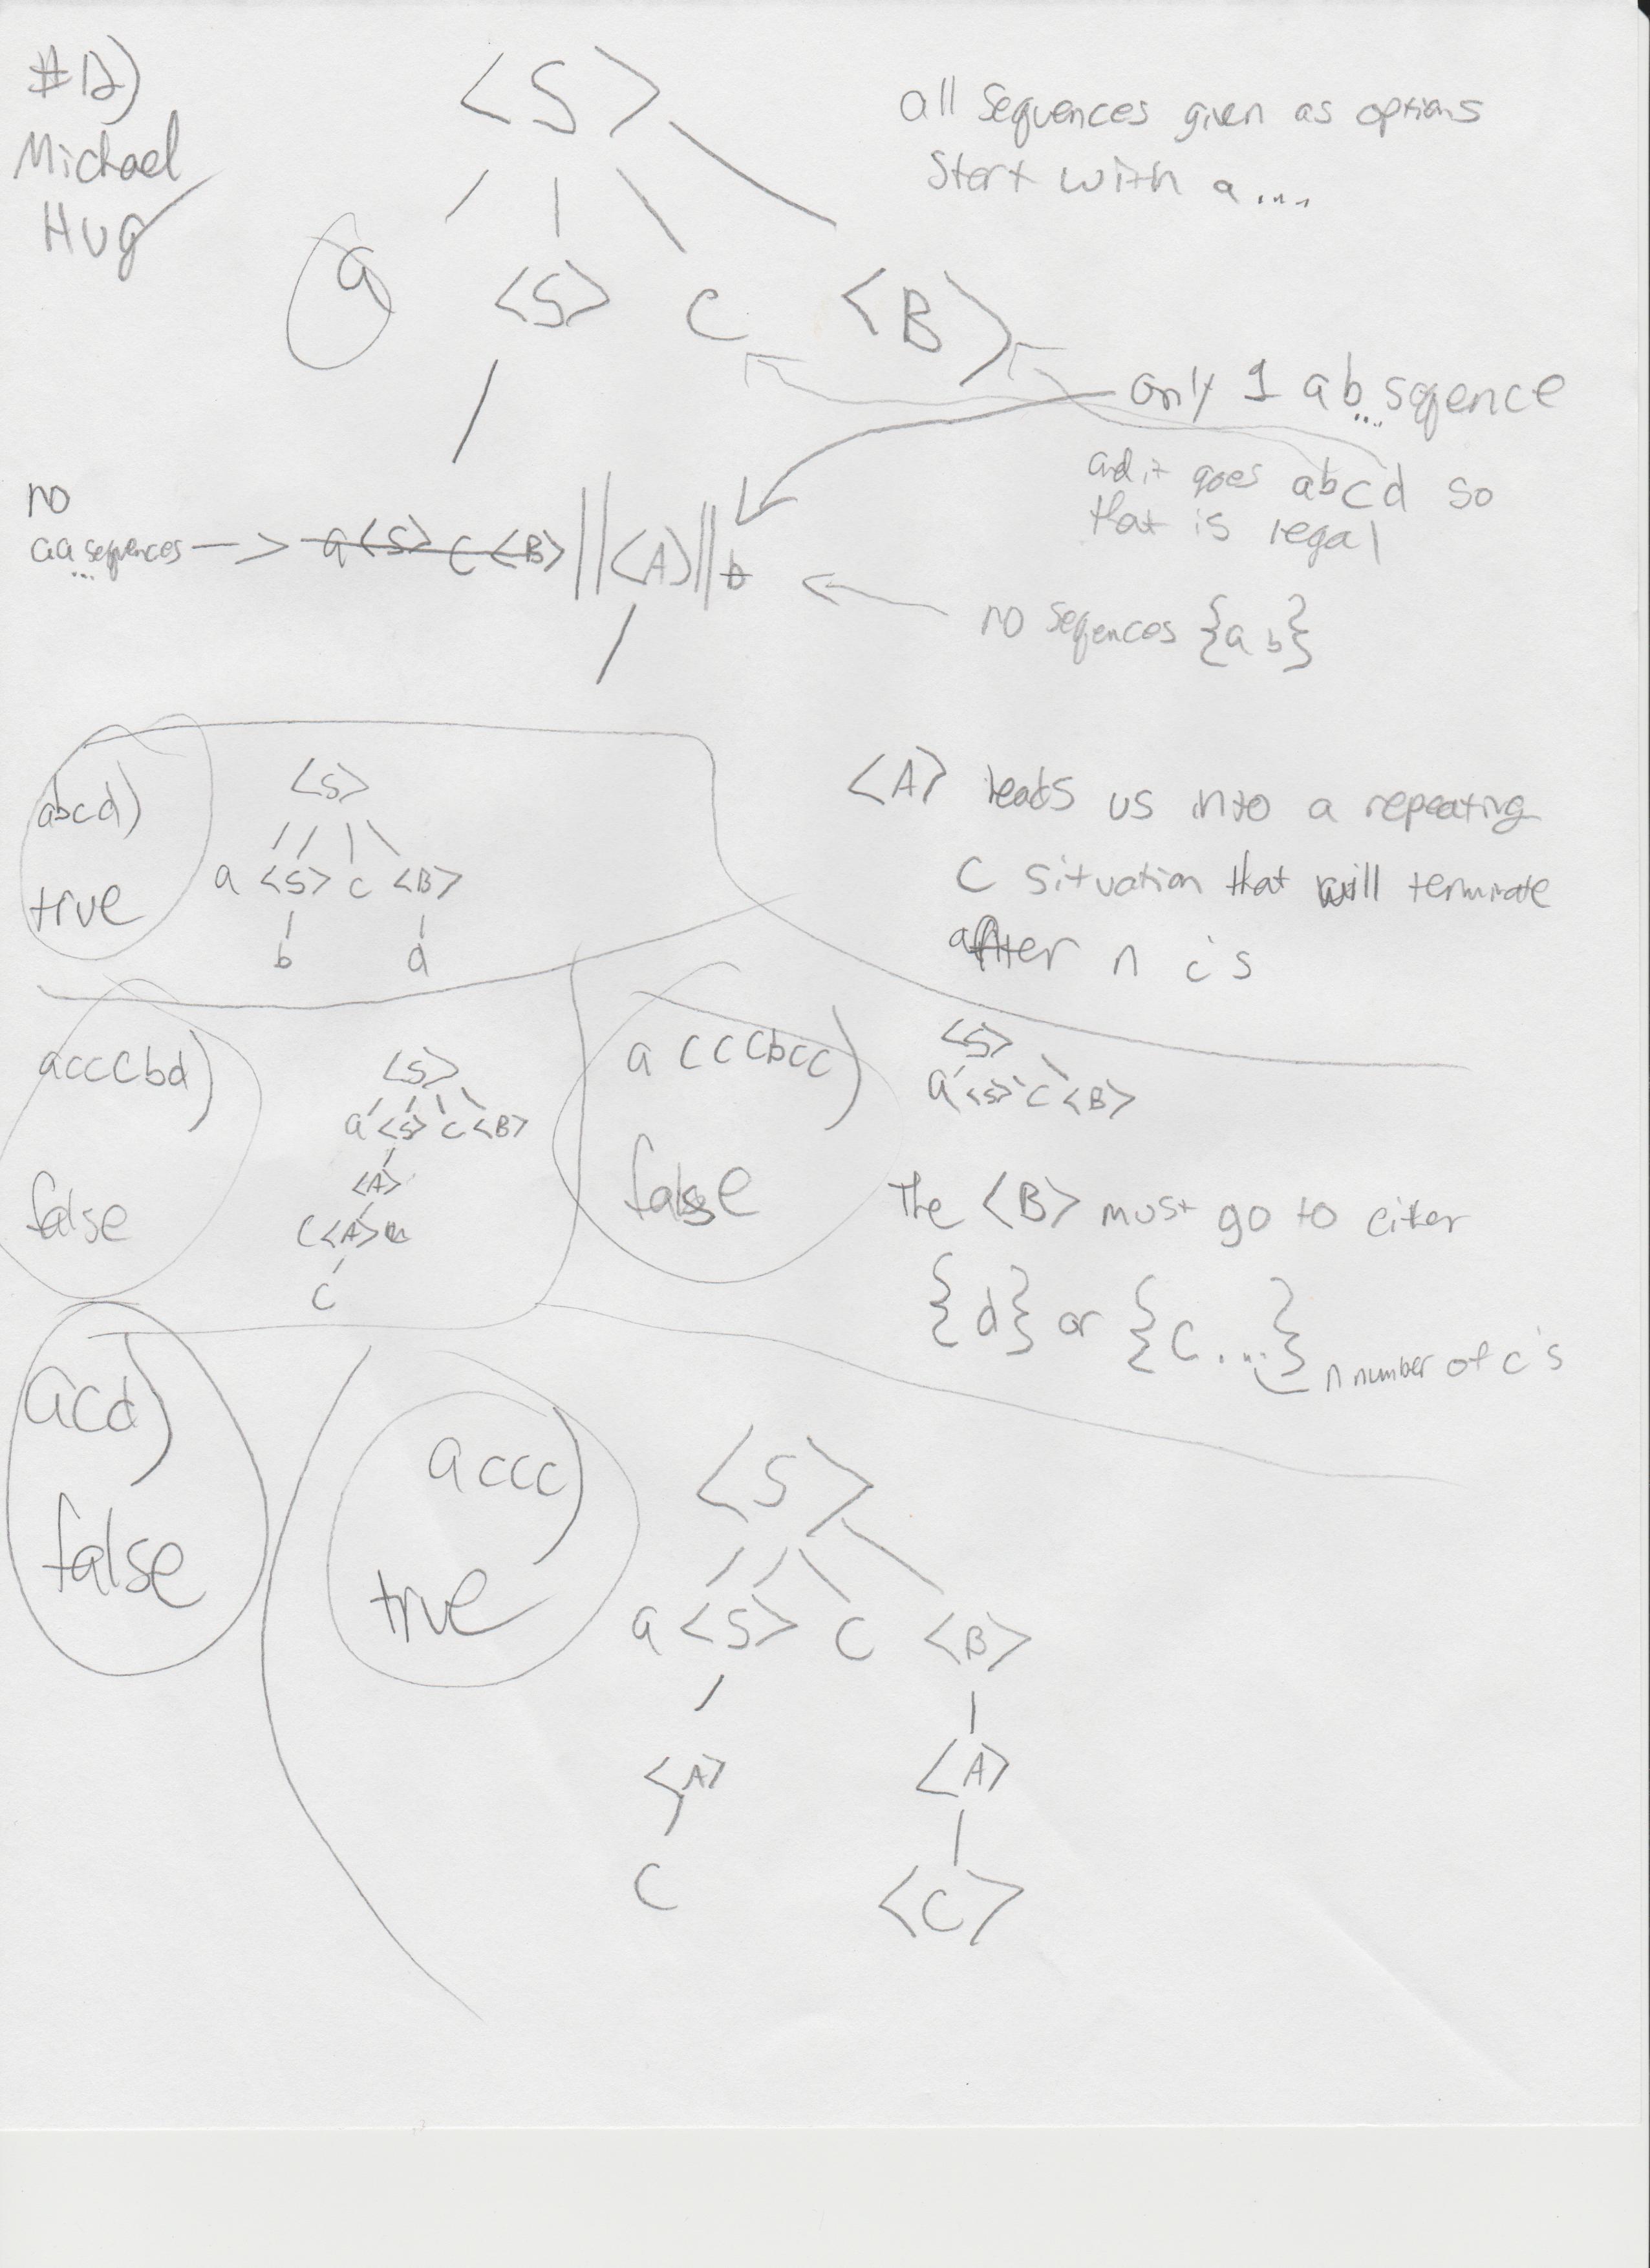 #12)
Michael
Hug
<S>
all sequences given as options
start with a....
a <S> c <B>
only 1 ab... sqence
and it goes abcd so
that is legal
no
aa... sequences —> a<S> c <B> || <A> || b
no seqences {a b}
abcd)
true
<S>
a <S> c <B>
b d
<A> leads us into a repeating
c situation that will terminate
after n c's
acccbd)
false
<S>
a <S> c <B>
<A>
c <A>
c
acccbcc)
false
<S>
a <S> c <B>
The <B> must go to either
{d} or {c ....} n number of c's
acd)
false
accc)
true
<S>
a <S> c <B>
<A> <A>
c <c>